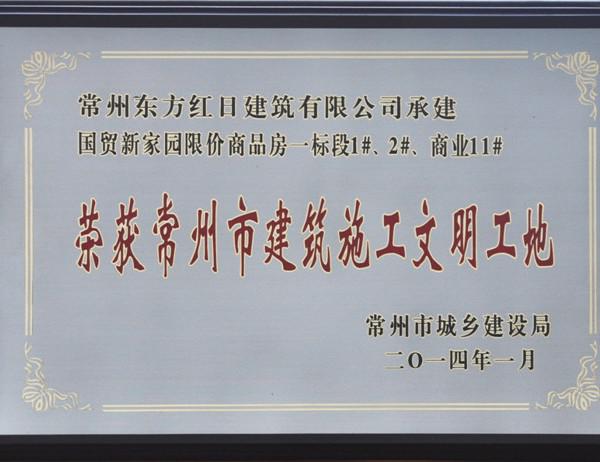 常州东方红日建筑有限公司承建
国贸新家园限价商品房一标段1#、2#、商业11#
荣获常州市建筑施工文明工地
常州市城乡建设局
二O一四年一月